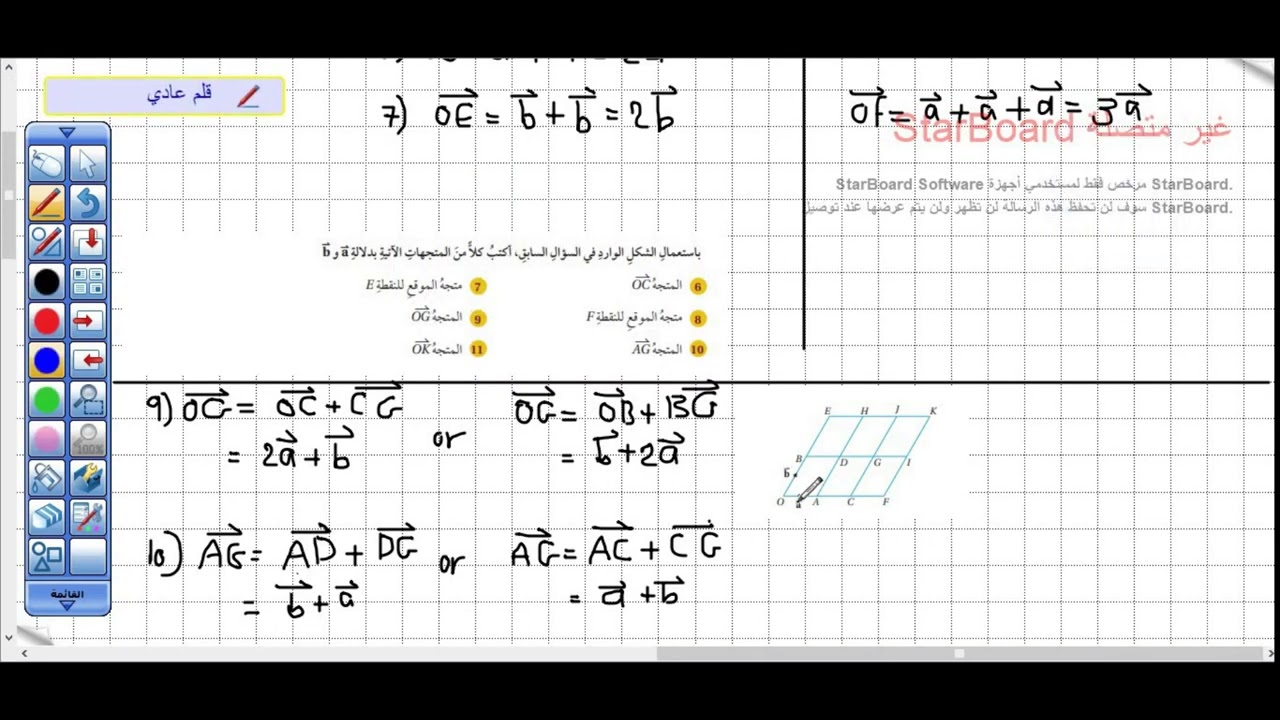 قلم عادي
7) OE⃗ = b⃗ + b⃗ = 2b⃗
OF⃗ = a⃗ + a⃗ + a⃗ = 3a⃗
غير متصلة StarBoard
StarBoard Software مرخص فقط لمستخدمي أجهزة StarBoard.
سوف لن تحفظ هذه الرسالة لن تظهر ولن يتم عرضها عند توصيل StarBoard.
باستعمالِ الشكلِ الواردِ في السؤالِ السابقِ، أكتبُ كلاًّ منَ المتجهاتِ الآتيةِ بدلالةِ a⃗ و b⃗
6 المتجهُ OC⃗
7 متجهُ الموقعِ للنقطةِ E
8 متجهُ الموقعِ للنقطةِ F
9 المتجهُ OG⃗
10 المتجهُ AG⃗
11 المتجهُ OK⃗
9) OG⃗ = OC⃗ + CG⃗ or OG⃗ = OB⃗ + BG⃗
= 2a⃗ + b⃗ = b⃗ + 2a⃗
E H J K
B D G I
b⃗
O A C F
a⃗
10) AG⃗ = AD⃗ + DG⃗ or AG⃗ = AC⃗ + CG⃗
= b⃗ + a⃗ = a⃗ + b⃗
100%
القائمة